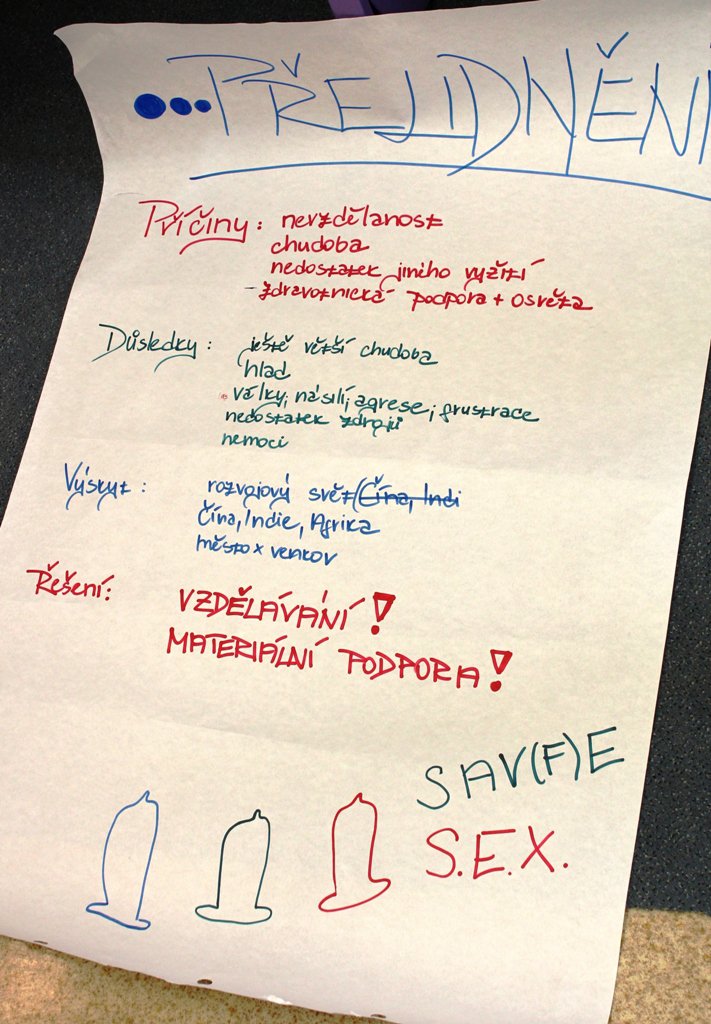 ...PŘELIDNĚNÍ
Příčiny: nevzdělanost
chudoba
nedostatek jiného vyžití
-zdravotnická podpora + osvěta
Důsledky: ještě větší chudoba
hlad
války, násilí, agrese, frustrace
nedostatek zdrojů
nemoci
Výskyt: rozvojový svět (Čína, Indi
Čína, Indie, Afrika
město x venkov
Řešení: VZDĚLÁVÁNÍ!
MATERIÁLNÍ PODPORA!
SAV(F)E
S.E.X.